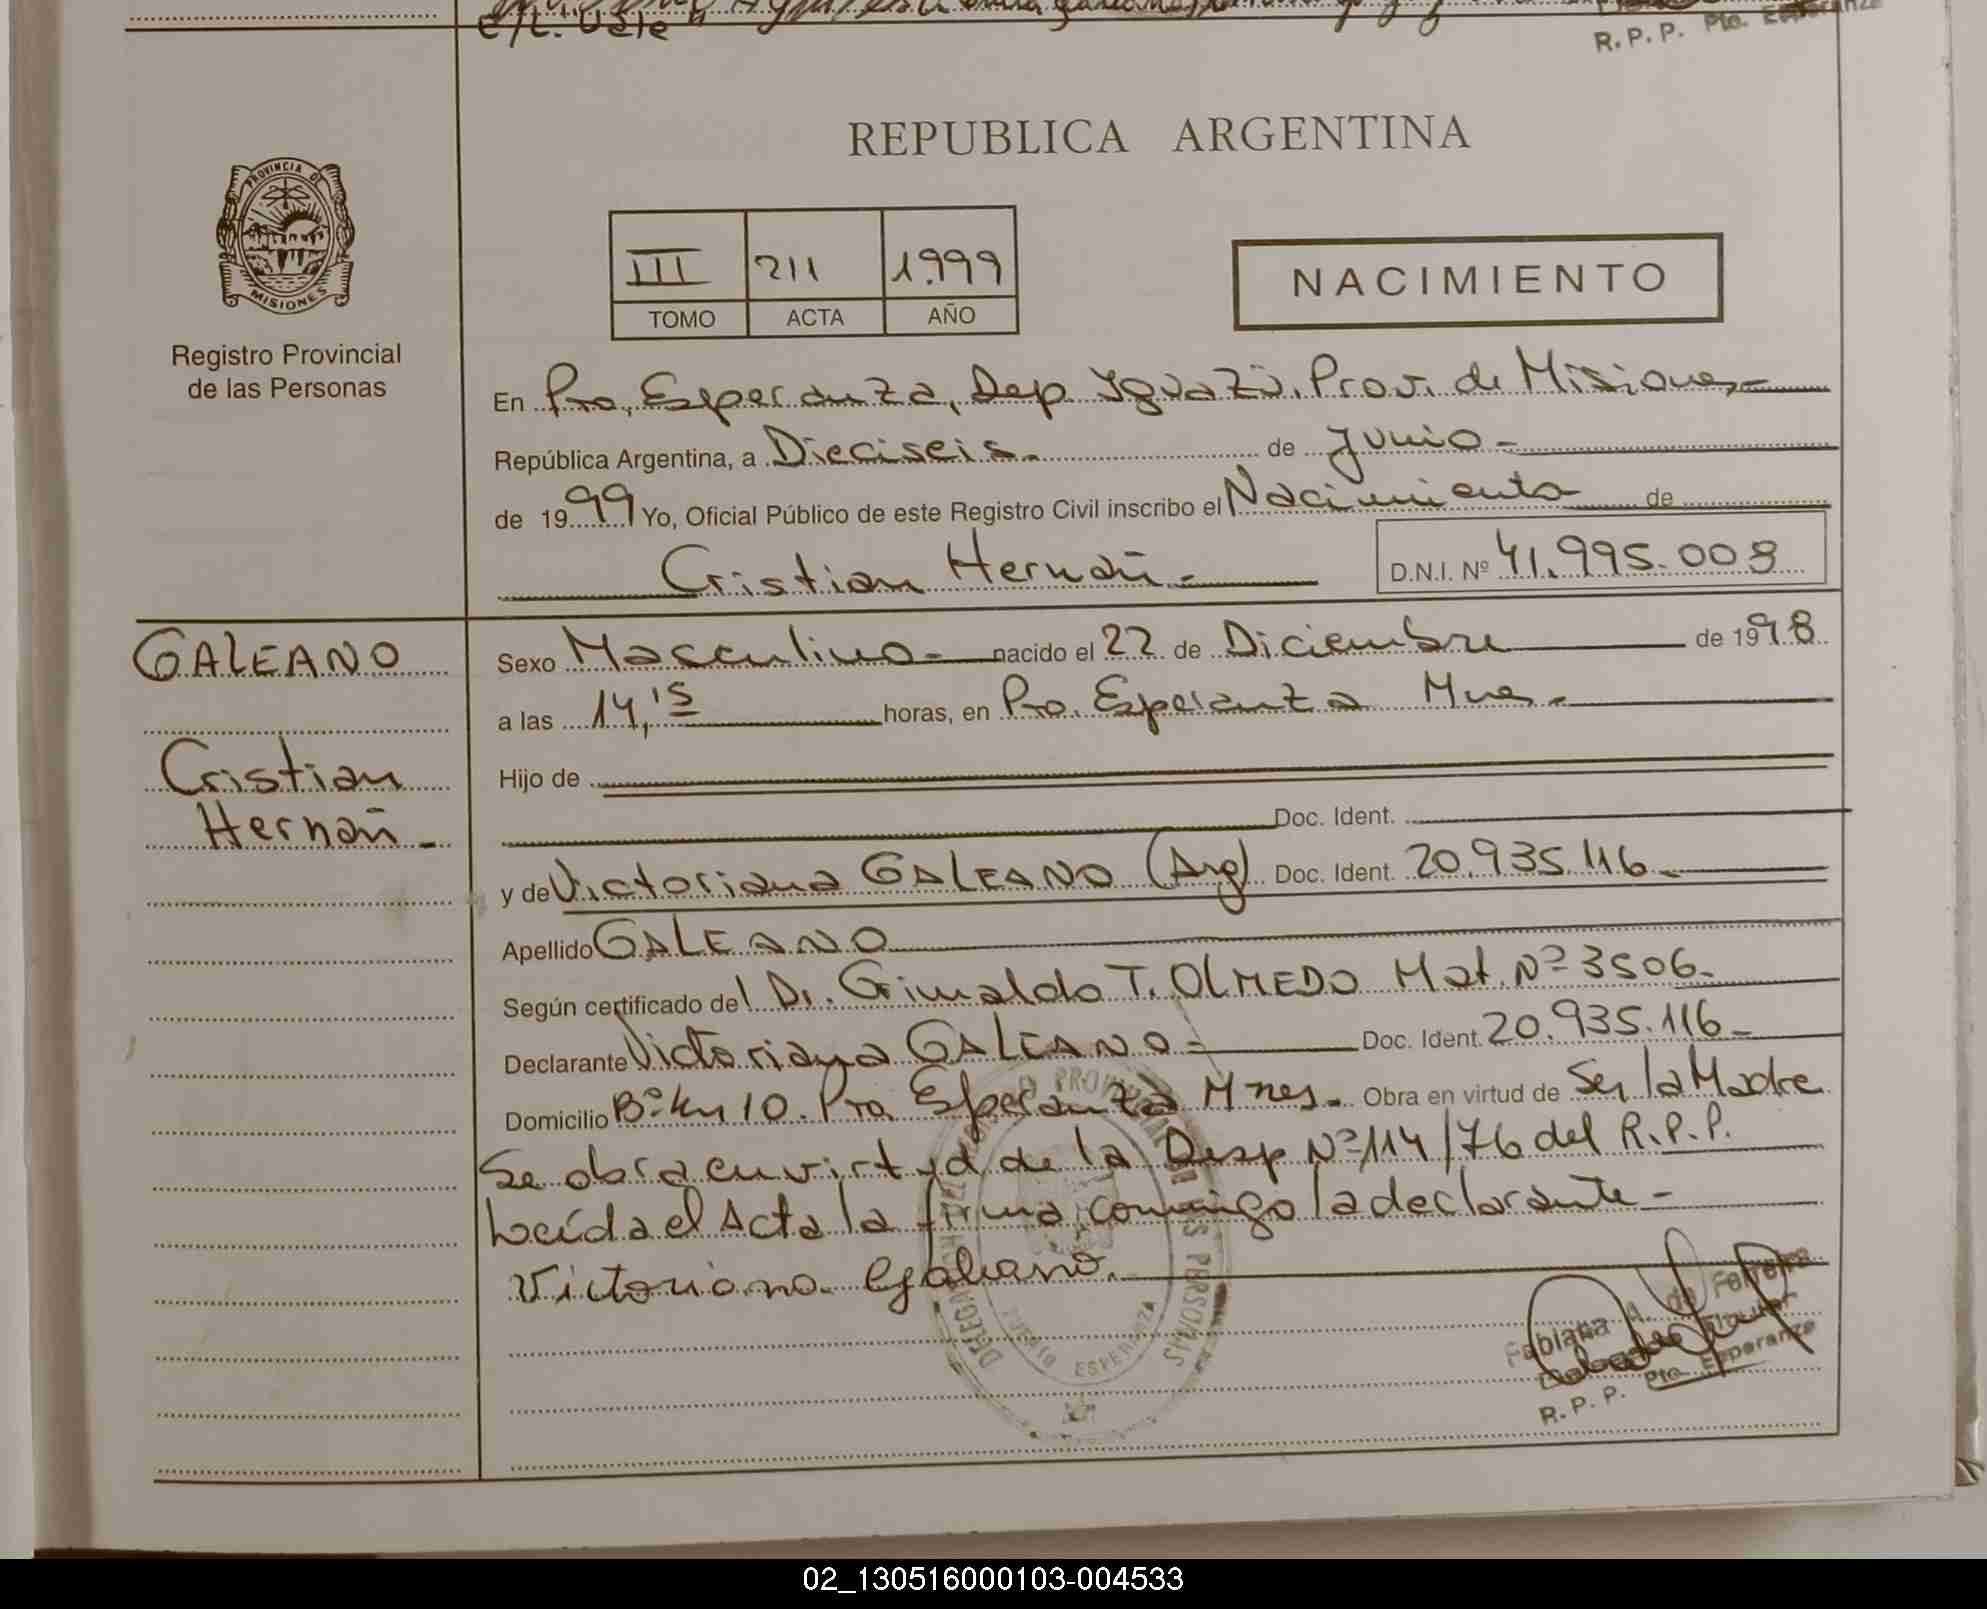 E/L. "Vale"
R.P.P. Pto. Esperanza
REPUBLICA ARGENTINA
PROVINCIA DE
MISIONES
Registro Provincial
de las Personas
III 211 1.999
TOMO ACTA AÑO
NACIMIENTO
En Pto. Esperanza, Dep. Iguazú. Prov. de Misiones,-
República Argentina, a Dieciseis.- de Junio-
de 1999 Yo, Oficial Público de este Registro Civil inscribo el Nacimiento de
Cristian Hernán.- D.N.I. Nº 41.995.009
GALEANO
Cristian
Hernán -
Sexo Masculino- nacido el 22 de Diciembre de 1998
a las 14,15 horas, en Pto. Esperanza Mnes.-
Hijo de
Doc. Ident.
y de Victoriana GALEANO (Arg) Doc. Ident. 20.935.116.-
Apellido GALEANO
Según certificado del Dr. Grimaldo T. OLMEDO Mat. Nº 3506.-
Declarante Victoriana GALEANO- Doc. Ident. 20.935.116-
Domicilio Bº Km 10. Pto. Esperanza Mnes.- Obra en virtud de Ser la Madre
Se obra en virtud de la Desp Nº 114/76 del R.P.P.
Leída el Acta la firma conmigo la declarante-
Victoriana Galeano.
Fabiana A. de Ferreira
Delegada Titular
R.P.P. Pto. Esperanza
PUERTO ESPERANZA
02_130516000103-004533